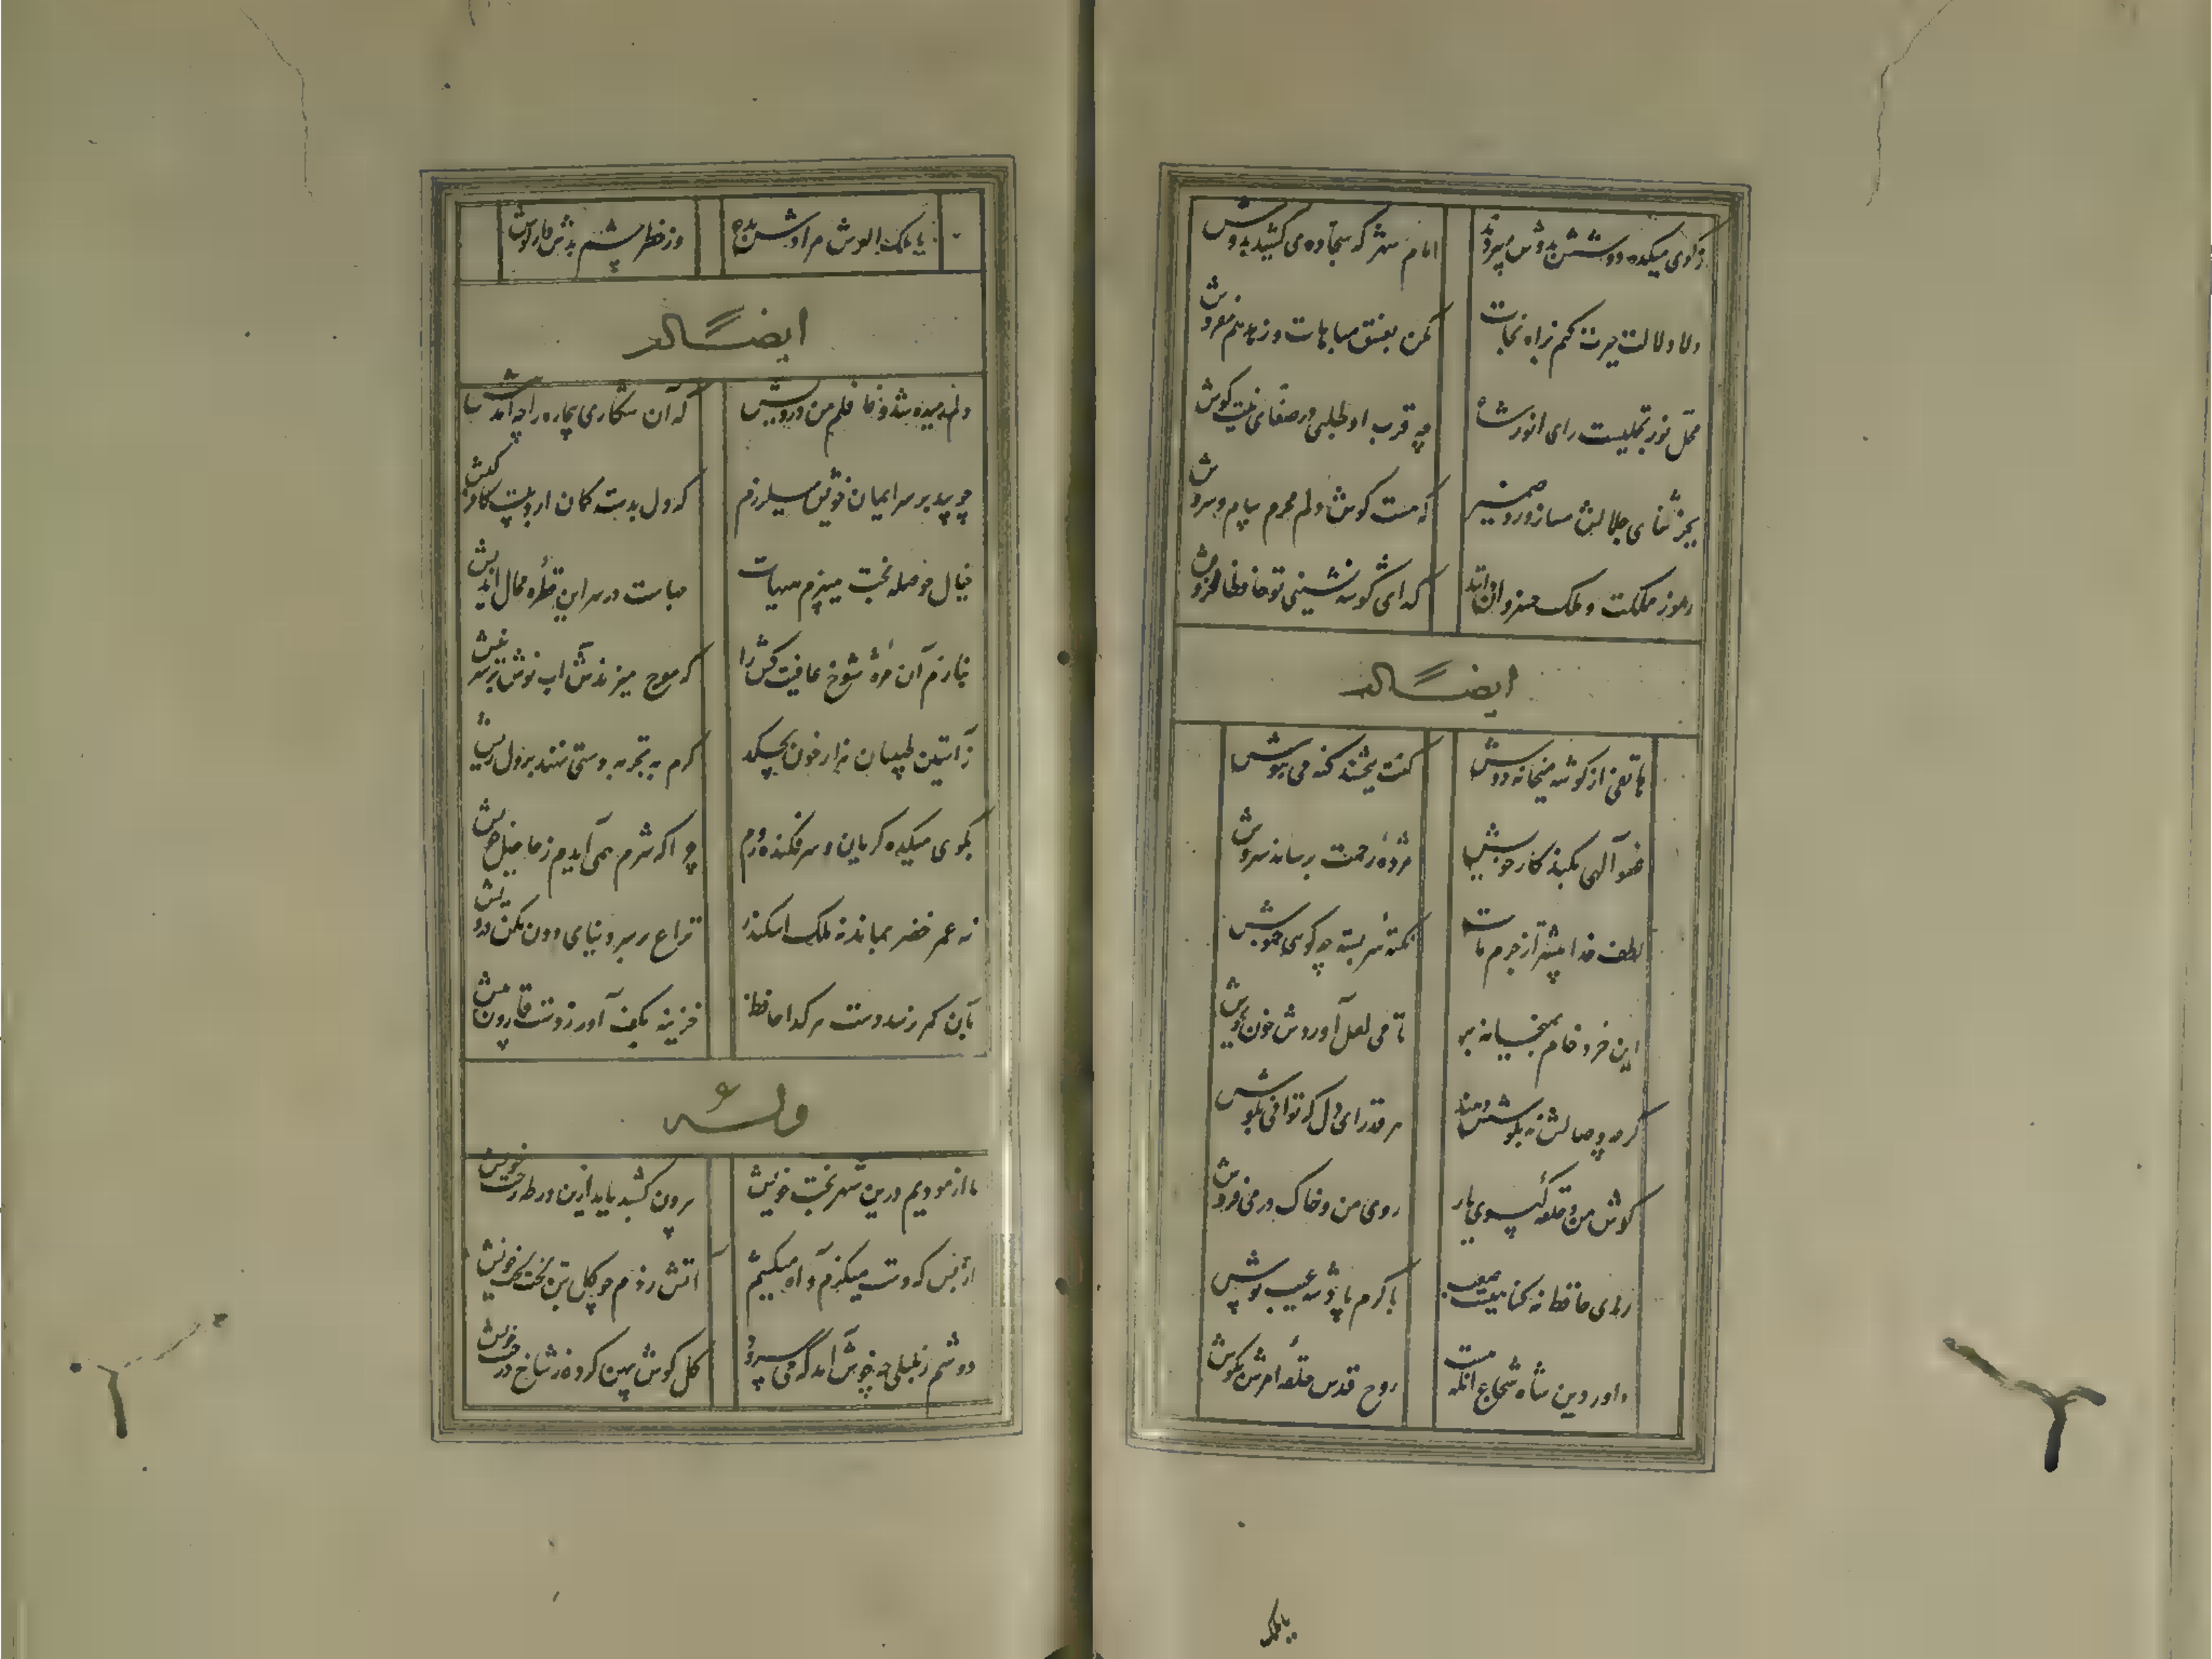 ز کوی میکده دوشش بدوش میبردند امام شهر که سجاده می کشید بدوش
دلا دلالت خیرت کنم براه نجات مکن بفسق مباهات و زهد هم مفروش
محل نور تجلیست رای انور شاه چو قرب او طلبی در صفای نیت کوش
بجز ثنای جلالش مساز ورد ضمیر که هست گوش دلم محرم پیام سروش
رموز مملکت و ملک خسروان دانند گدای گوشه نشینی تو حافظا مخروش
ایضاً له
هاتفی از گوشه میخانه دوش گفت ببخشند گنه می بنوش
عفو الهی بکند کار خویش مژدهٔ رحمت برساند سروش
لطف خدا بیشتر از جرم ماست نکته سربسته چه گوئی خموش
این خرد خام بمیخانه بر تا می لعل آوردش خون بجوش
گرچه وصالش نه بکوشش دهند هر قدر ای دل که توانی بکوش
گوش من و حلقه گیسوی یار روی من و خاک در می فروش
رندی حافظ نه گناهیست صعب با کرم پادشه عیب پوش
داور دین شاه شجاع آنکه هست روح قدس حلقهٔ امرش بگوش
یا ملک
یا ملک العرش مرادش بده وز خطر چشم بدش دار گوش
ایضاً له
دلم رمیده شد و غافلم من درویش که آن شکاری بیچاره را چه آمد پیش
چو بید بر سر ایمان خویش میلرزم که دل بدست کمان ابروئیست کافر کیش
خیال حوصله بحر میپزم هیهات چهاست در سر این قطره محال اندیش
بنازم آن مژهٔ شوخ عافیت کش را که موج میزندش آب نوش بر سر نیش
ز آستین طبیبان هزار خون بچکد گرم به تجربه دستی نهند بر دل ریش
بکوی میکده گریان و سرفکنده روم چرا که شرم همی آیدم ز حاصل خویش
نه عمر خضر بماند نه ملک اسکندر نزاع بر سر دنیای دون مکن درویش
بآن کمر نرسد دست هر گدا حافظ خزینه بکف آور ز گنج قارون بیش
وله
ما آزمودیم درین شهر بخت خویش بیرون کشید باید ازین ورطه رخت خویش
از بس که دست میگزم و آه میکشم آتش زدم چو گل بتن لخت لخت خویش
دوشم ز بلبلی چه خوش آمد که می سرود گل گوش پهن کرده ز شاخ درخت خویش